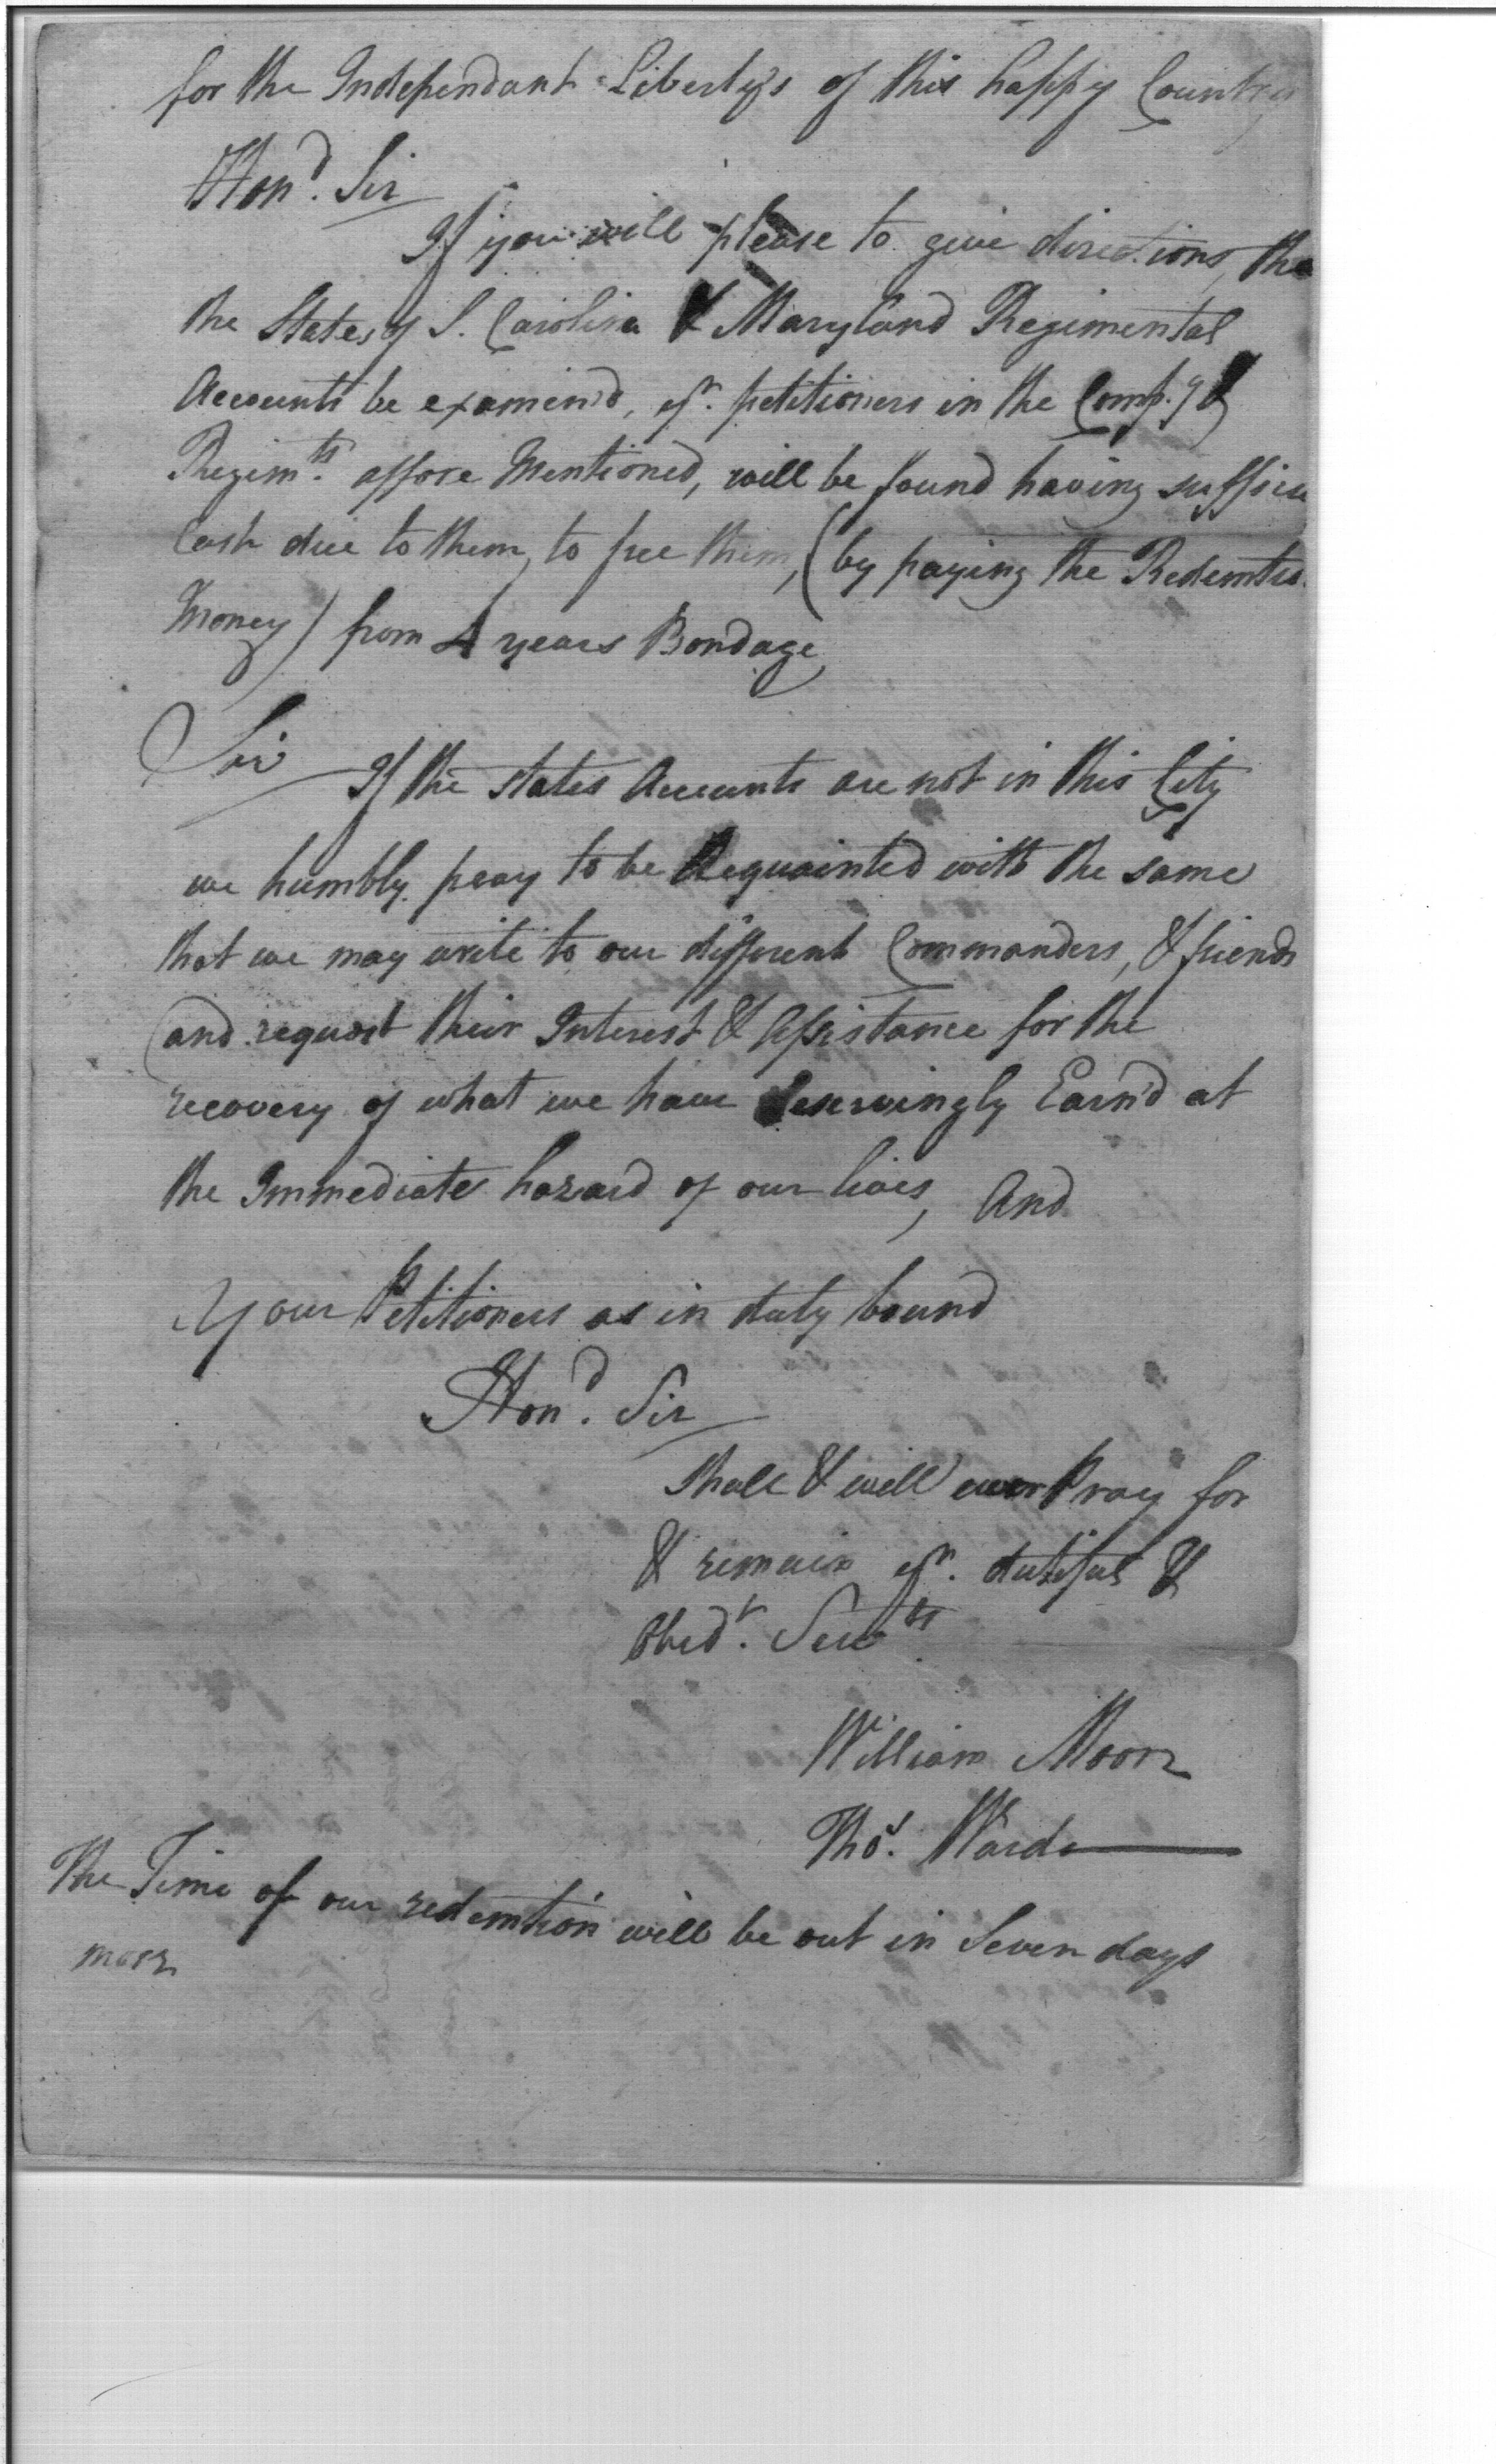 for the Independant Liberty's of this happy Country
Hond. Sir
If you will please to give directions, tha
the States of S. Carolina & Maryland Regimental
Accounts be examin'd, yr. petitioners in the Comp.ys &
Regimts. affore Mentioned, will be found having suffici
Cash due to them, to free them, (by paying the Redemtio
Money) from 4 years Bondage
Sir If the states Accounts are not in this City
we humbly pray to be Acquainted with the same
that we may write to our different Commanders, & friends
and request their Interest & Assistance for the
recovery of what we have deservingly Earn'd at
the Immediate hazard of our lives, And
Your Petitioners as in duty bound
Hond. Sir
shall & will ever Pray for
& remain yr. dutiful &
Obedt. Servts
William Moore
Thos. Ward
The Time of our redemtion will be out in Seven days
more